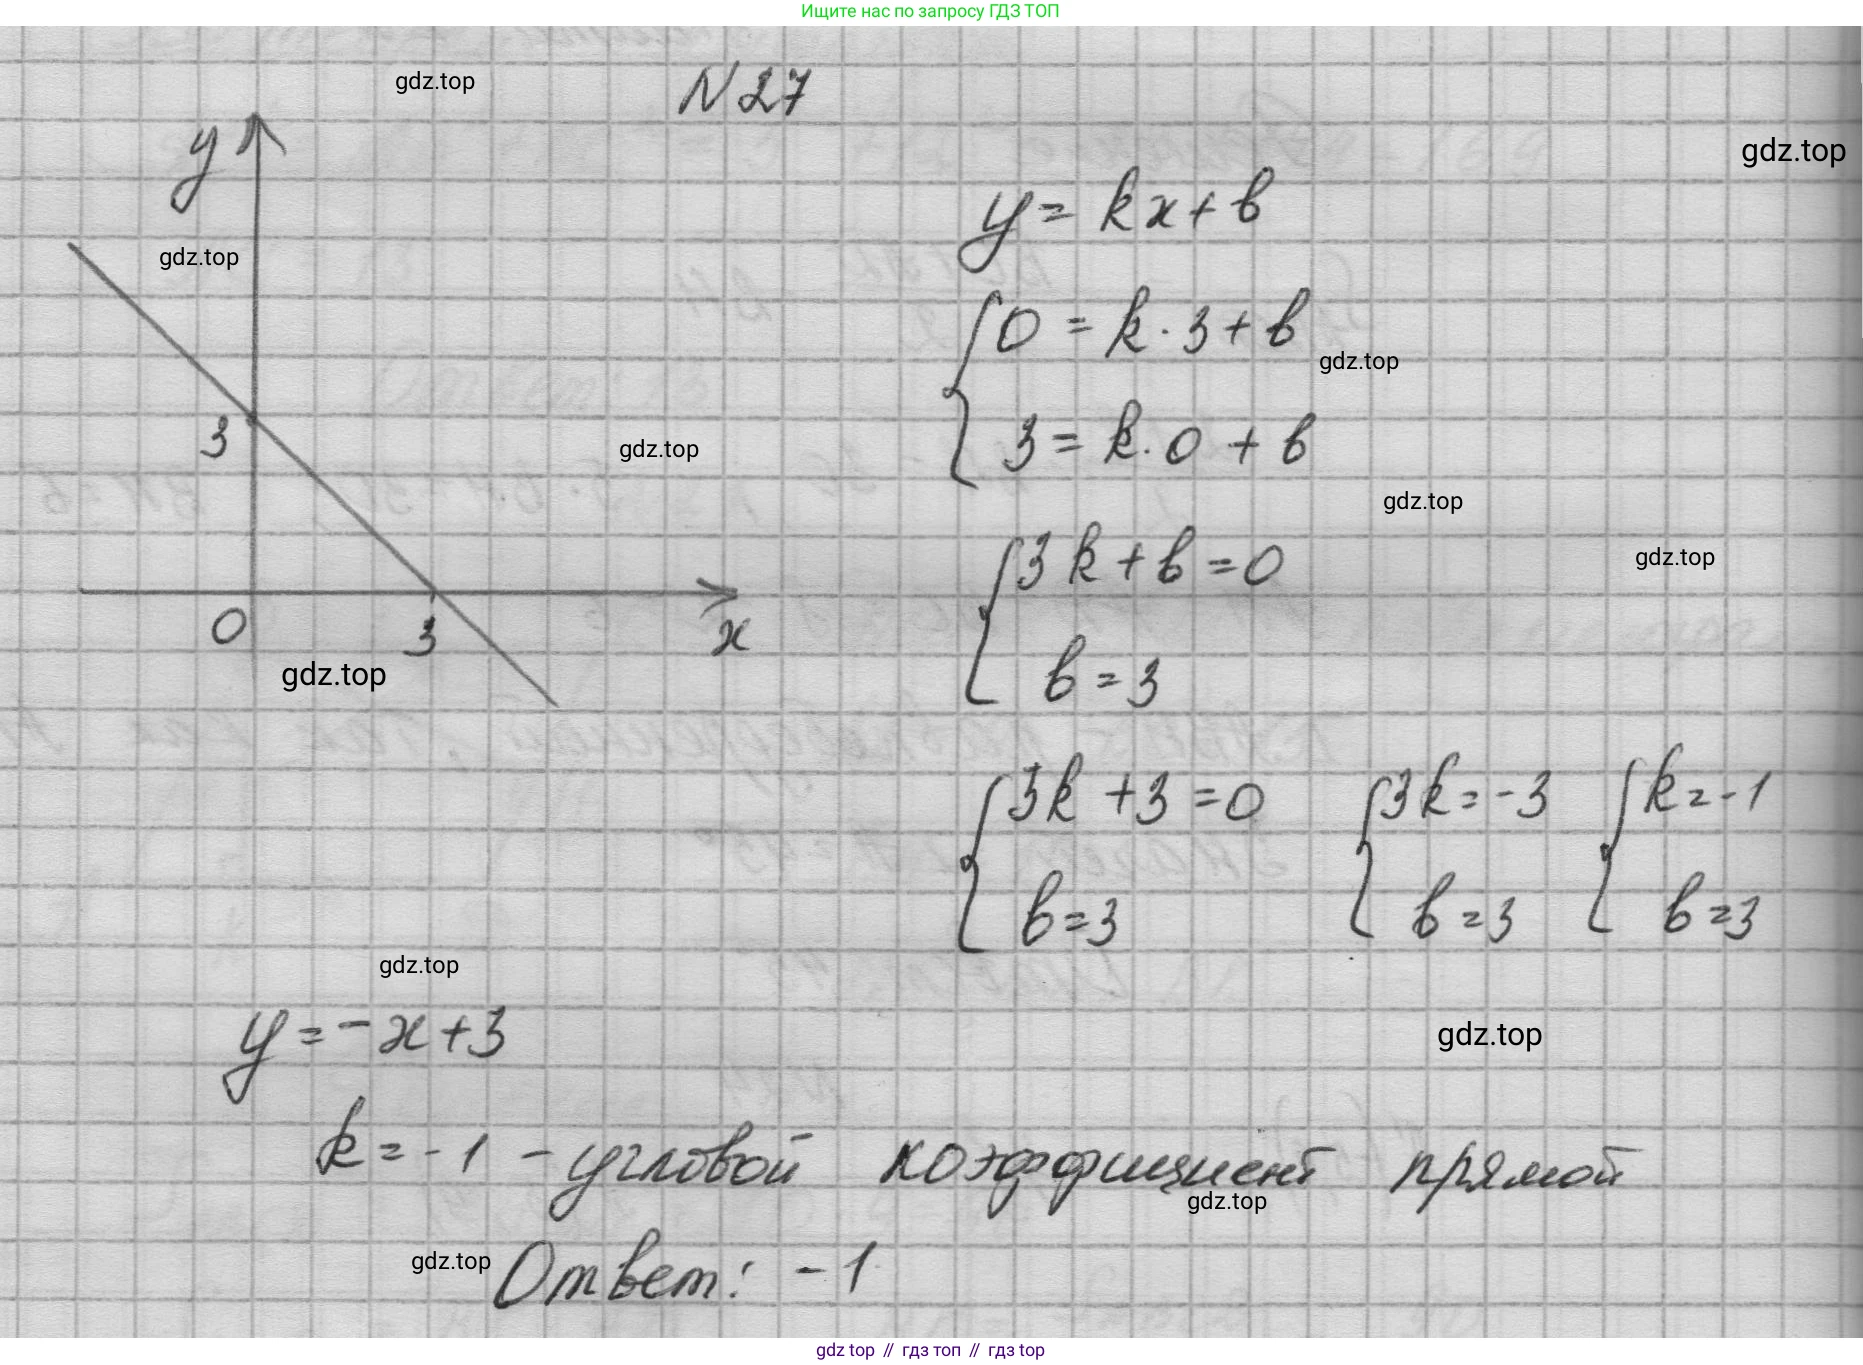 Ищите нас по запросу ГДЗ ТОП
gdz.top
N 27
gdz.top
y
y = kx + b
gdz.top
0 = k · 3 + b
gdz.top
3
gdz.top
3 = k · 0 + b
gdz.top
3k + b = 0
gdz.top
0
3
x
b = 3
gdz.top
3k + 3 = 0
3k = -3
k = -1
b = 3
b = 3
b = 3
gdz.top
y = -x + 3
gdz.top
k = -1 - угловой коэффициент прямой
gdz.top
gdz.top
Ответ: -1
gdz.top // гдз топ // gdz top